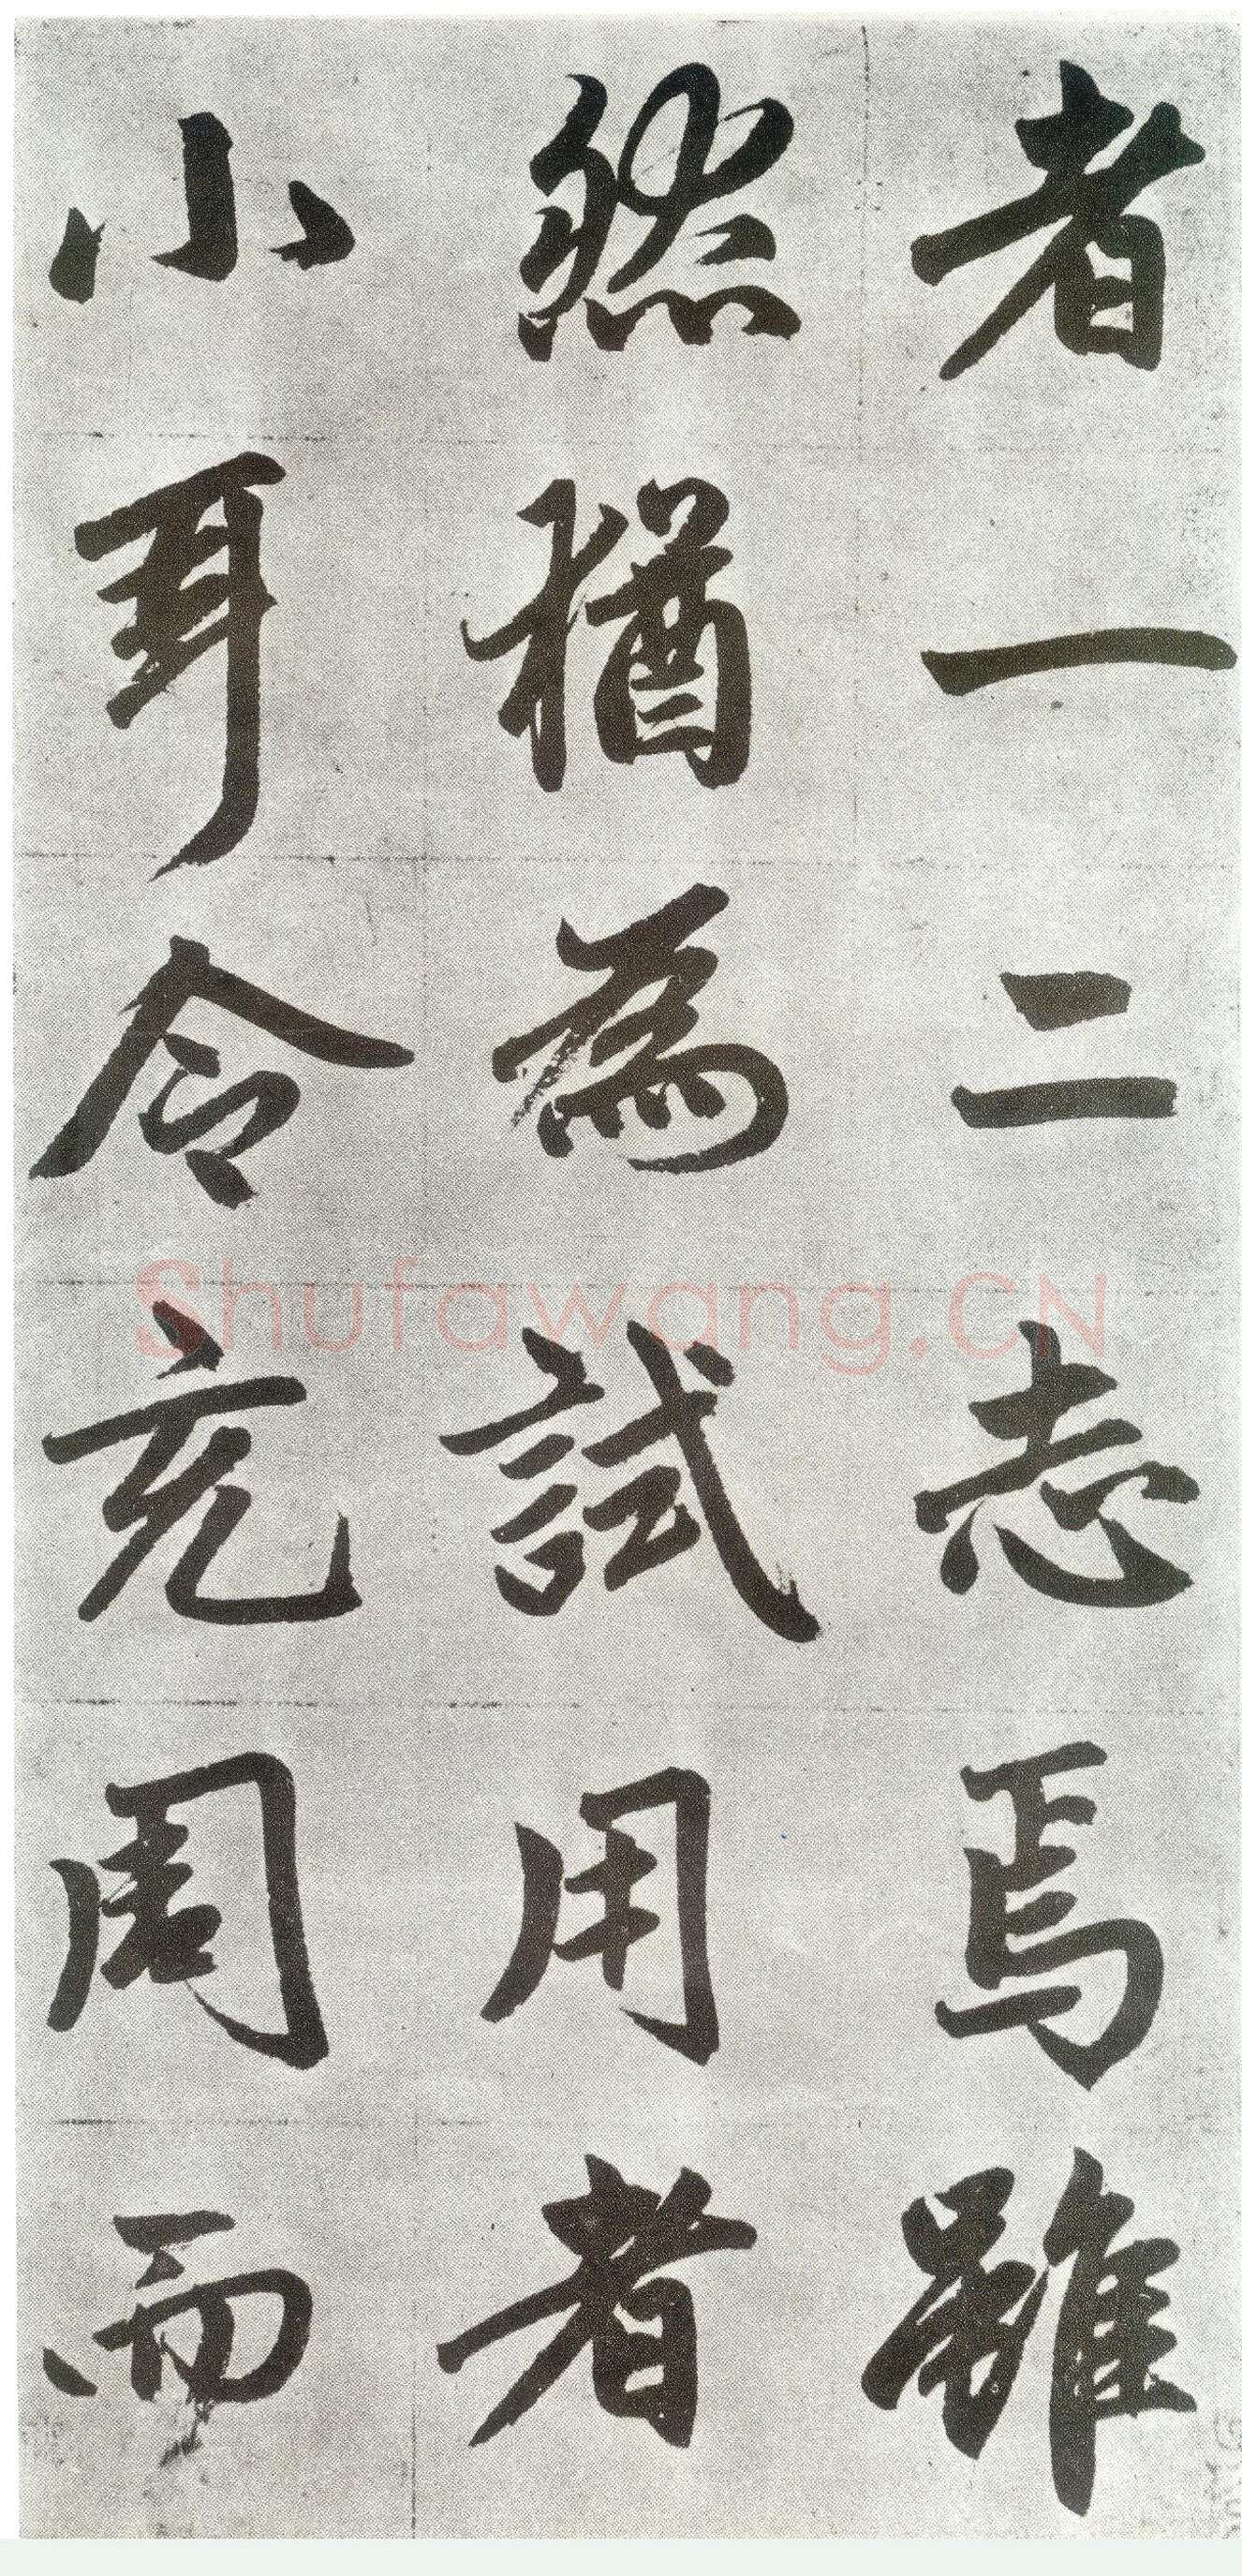 者一二志焉雖
然猶為試用者
小耳令充周而
Shufawang.CN